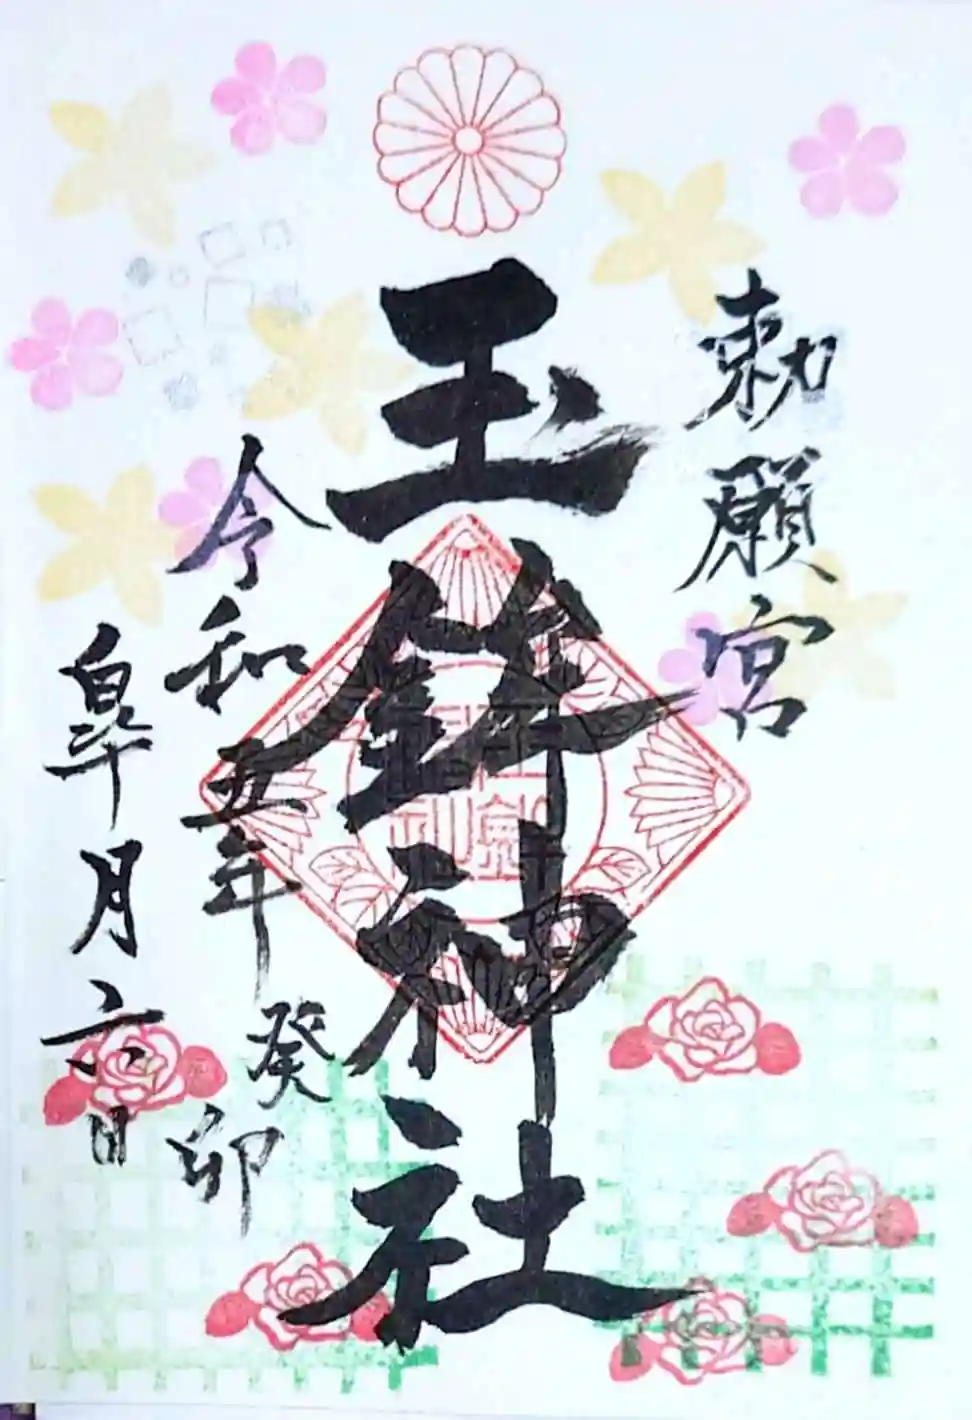 勅願宮
玉鉾神社
令和五年癸卯
皐月六日